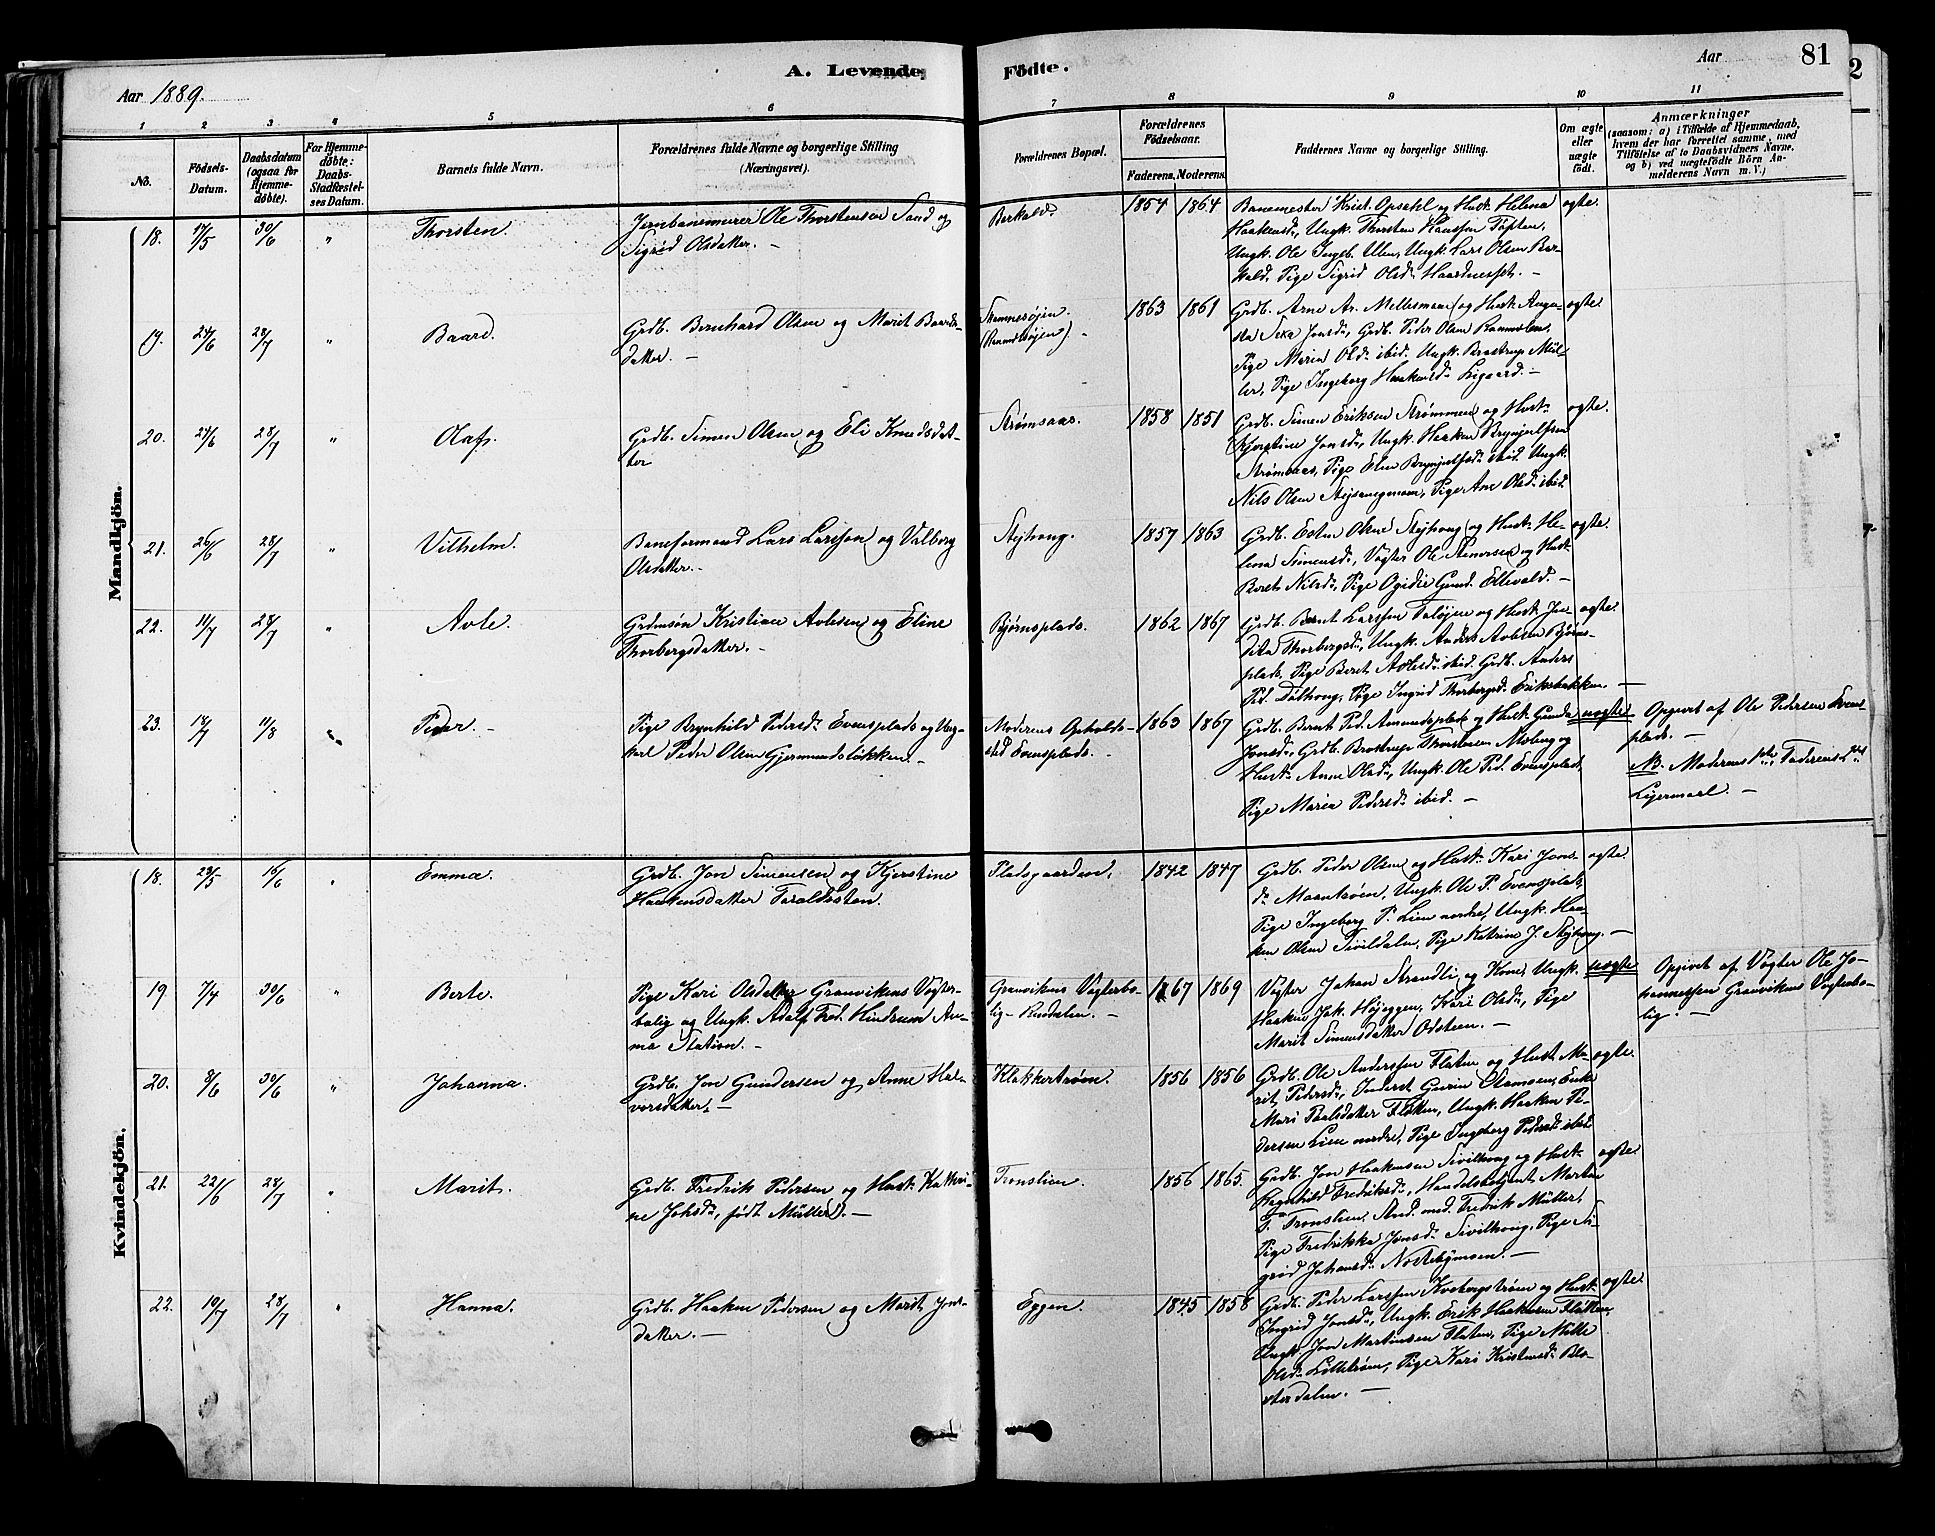 Aar 1889.
A. Levende
Födte.
Aar
81
2
1 2 3 4 5 6 7 8 9 10 11
No.
Födsels-
Datum.
Daabsdatum
(ogsaa for
Hjemme-
døbte).
For Hjemme-
døbte:
Daabs-
Stadfæstel-
ses Datum.
Barnets fulde Navn.
Forældrenes fulde Navne og borgerlige Stilling
(Næringsvei).
Forældrenes Bopæl.
Forældrenes
Födselsaar.
Faderens. Moderens.
Faddernes Navne og borgerlige Stilling.
Om ægte
eller
uægte
födt.
Anmærkninger
(saasom: a) i Tilfælde af Hjemmedaab,
hvem der har forrettet samme, med
Tilföielse af to Daabsvidners Navne,
og b) ved uægtefödte Börn An-
melderens Navn m. V.)
Mandkjön.
18. 17/5 30/6 " Thorsten.
Jernbanemurer Ole Thorstensen Sand og
Sigrid Olsdatter. —
Berkald.
1854 1864
Banemester Krist. Opsahl og Hust. Helena
Haakensd., Ungk. Thorsten Hanssen Töften,
Ungk. Ole Ingeb. Ulen, Ungk. Lars Olsen Ber-
kald, Pige Sigrid Olsd. Haardnesset. —
ægte.
19. 24/6 28/7 " Baard.
Grdb. Bernhard Olsen og Marit Baards-
datter. —
1863 1861
Grdb. Arne Ar. Mellesmoe og Hust. Augu-
sta Jonsd., Grdb. Peder Olsen
Pige Maria Olsd. ibid. Ungk. Brostrup Mül-
ler, Pige Ingeborg Haakensd. Ligaard. —
ægte.
20. 24/6 28/7 " Olaf.
Grdb. Simen Olsen og Eli Knudsdat-
ter
Strømsaas.
1858 1851
Grdb. Simen Eriksen Strømmen og Hust.
Kjerstine Jonsd., Ungk. Haaken Brynjulfsen
Strømsaas, Pige Elen Brynjulfsd. ibid. Ungk.
Nils Olsen Pige Ane Olsd. ibid.
ægte.
21. 26/6 28/7 " Vilhelm.
Baneformand Lars Larsson og Valborg
Olsdatter. —
Stejhoug.
1857 1863
Grdb. Esten Olsen Stejhoug og Hust. He-
lena Simensd., Vogter Ole Stenersen og Hust.
Beret Nilsd., Pige Ogidie Gund. Ellevold. —
ægte.
22. 11/7 28/7 " Avle.
Grdmsön Kristian Avlesen og Eline
Thorbergsdatter. —
Bjørnsplads.
1862 1867
Grdb. Bernt Larssen Taløjen og Hust. In-
Thorbergsd., Ungk. Anders Avlesen Bjørns-
plads, Pige Beret Avlesd. ibid. Grdb. Anders
Ped. Dølhoug, Pige Ingrid Thorbergsd. Eriksbakken. —
ægte.
23. 18/7 11/8 Peder. —
Pige Brynhild Pedersd. Evensplads og Ung-
karl Peder Olsen Gjermundslökken. —
Moderens Opholds-
sted Evensplads. —
1863 1867
Grdb. Bernt Ped. Amundsplads og Hust. Gunda
Jonsd., Grdb. Brostrup Thorstensen Moberg og
Hust. Anne Olsd., Ungk. Ole Ped. Evensplads,
Pige Maria Pedersd. ibid. —
uægte
Opgivet af Ole Pedersen Evens-
plads. —
NB. Moderens 1ste, Faderens 2det
Lejermaal. —
Kvindekjön.
18. 23/5 16/6 " Emma.
Grdb. Jon Simensen og Kjerstine
Haakensdatter Taraldsten.
Pladsgaarden.
1842 1847
Grdb. Peder Olsen og Hust. Kari Jons-
d. Moantrøen, Ungk. Ole P. Evensplads,
Pige Ingeborg P. Lien nordre, Ungk. Haa-
ken Olsen Sivildalen, Pige Katrine J. Stejhoug. —
ægte.
19 7/4 30/6 " Berte.
Pige Kari Olsdatter Granvikens Vogter-
bolig og Ungk. Adolf Fred. Hindrum An-
ma Station. —
Granvikens Vogterbo-
lig Rusdalen. —
1867 1869
Vogter Johan Strandli og Kone, Ungk.
Haaken Jak. Højeggen, Kari Olsd., Pige
Marit Simensdatter Odsteen. —
uægte
Opgivet af Vogter Ole Jo-
hannessen Granvikens Vogterbo-
lig. —
20. 8/6 30/6 " Johanna.
Grdb. Jon Gundersen og Anne Hal-
vorsdatter. —
Klokkertrøen.
1856 1856
Grdb. Ole Anderssen Flaten og Hust. Ma-
rit Pedersd., Inderst Gurin Olamsen, Enke
Mari Paalsdatter Fløtten, Ungk. Haaken Pe-
dersen Lien nordre, Pige Ingeborg Pedersd. ibid.
ægte.
21. 22/6 28/7 " Marit.
Grdb. Fredrik Pedersen og Hust. Kathri-
ne Johsd., født Müller. —
Tronslien.
1856 1865.
Grdb. Jon Haakensen Sivilhoug og Hust.
Ragnhild Fredriksd., Handelsbetjent Morten
F. Tronslien, Stud. med. Fredrik Müller,
Pige Fredrikka Jonsd. Sivilhoug, Pige Si-
grid Johansd. —
ægte.
22. 10/7 28/7 " Hanna.
Grdb. Haaken Pedersen og Marit Jons-
datter. —
Eggen.
1845 1858
Grdb. Peder Larssen Kvebergströen og Hust.
Ingrid Jonsd., Ungk. Erik Haakensen Fløtten,
Ungk. Jon Martinsen Flaten, Pige Mille
Olsd. Lilletrøen, Pige Kari Kristensd. Bes-
sterdalen. —
ægte.